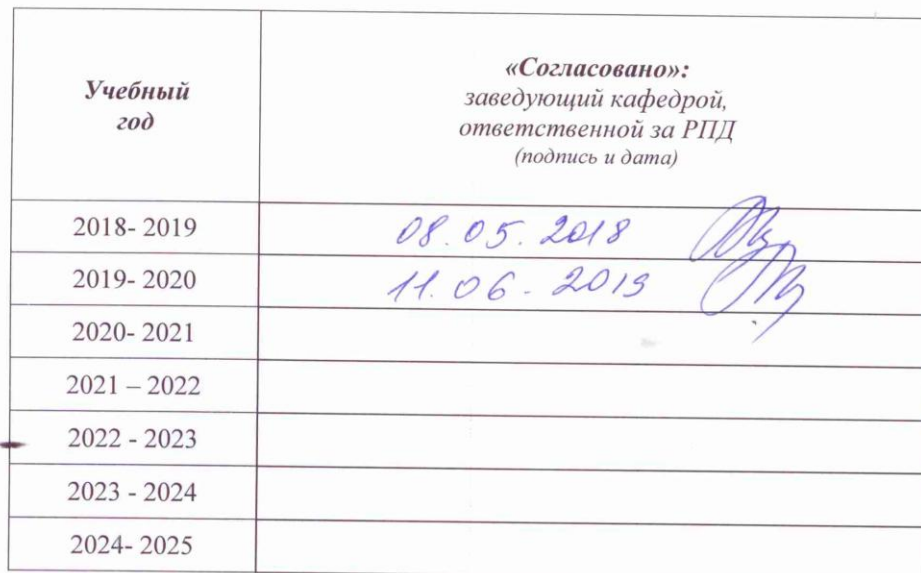 Учебный
год
«Согласовано»:
заведующий кафедрой,
ответственной за РПД
(подпись и дата)
2018- 2019
08.05.2018
2019- 2020
11.06-2019
2020- 2021
2021 – 2022
2022 - 2023
2023 - 2024
2024- 2025